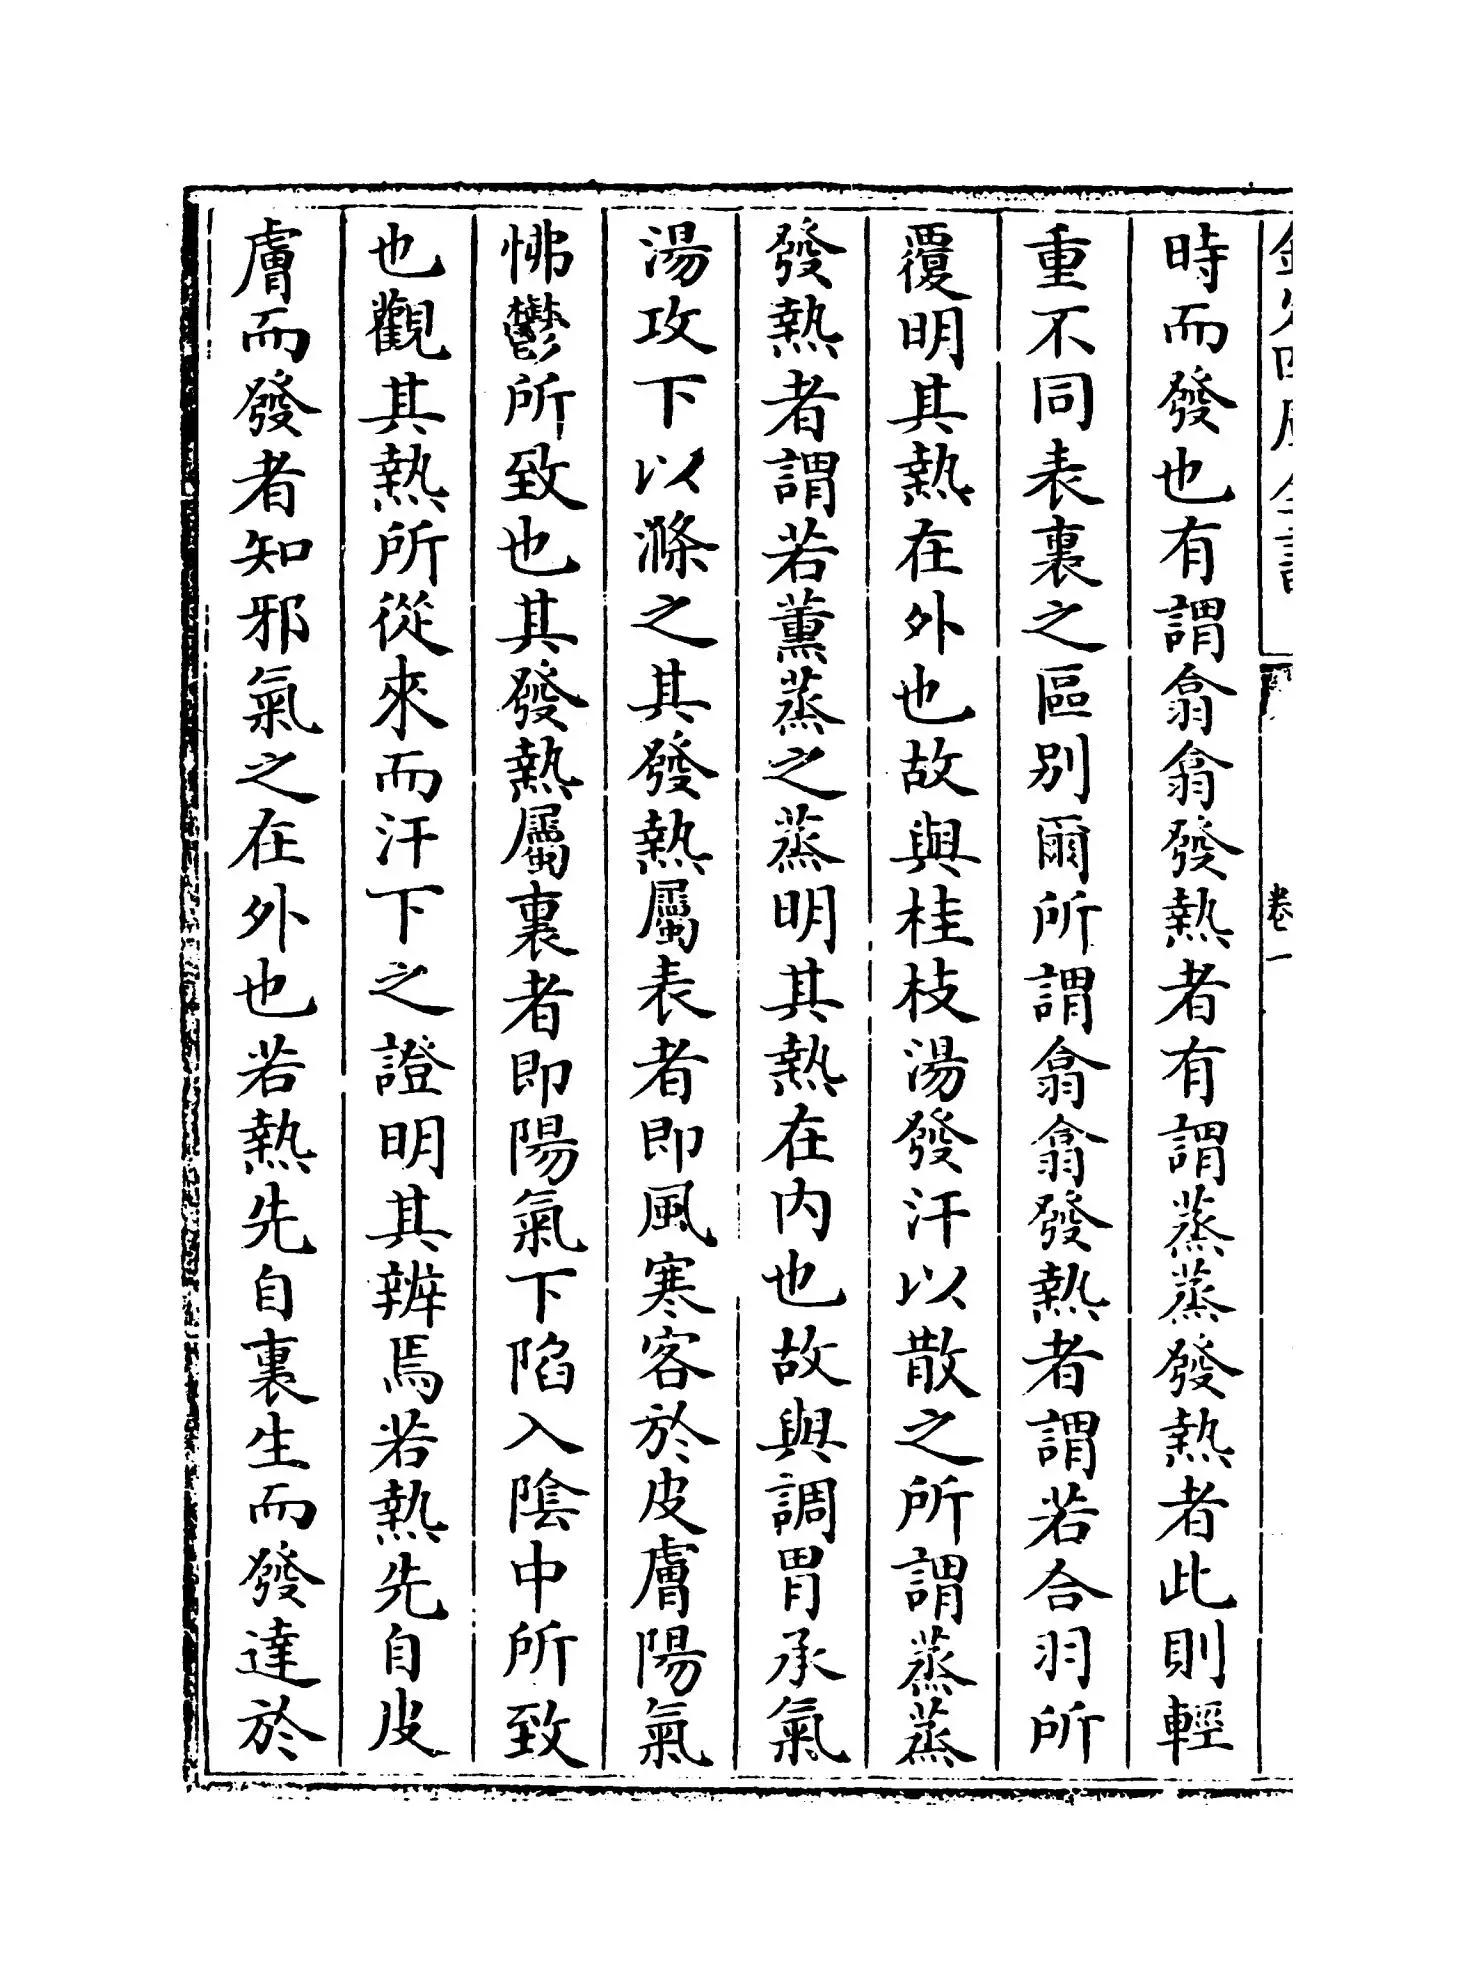 欽定四庫全書
卷一
時而發也有謂翕翕發熱者有謂蒸蒸發熱者此則輕
重不同表裏之區别爾所謂翕翕發熱者謂若合羽所
覆明其熱在外也故與桂枝湯發汗以散之所謂蒸蒸
發熱者謂若薰蒸之蒸明其熱在内也故與調胃承氣
湯攻下以滌之其發熱屬表者即風寒客於皮膚陽氣
怫鬱所致也其發熱屬裏者即陽氣下陷入陰中所致
也觀其熱所從來而汗下之證明其辨焉若熱先自皮
膚而發者知邪氣之在外也若熱先自裏生而發達於